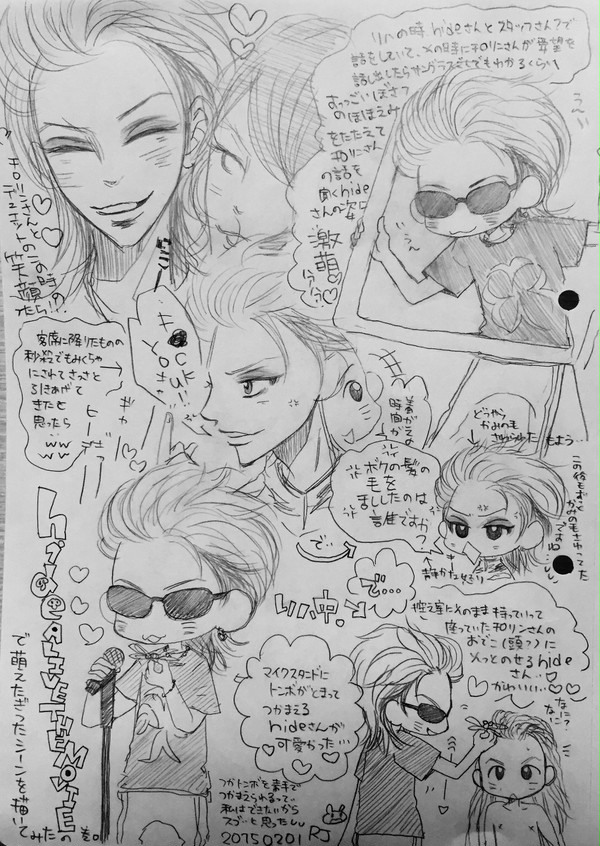 リハの時hideさんとスタッフさん?で
話をしていて、その時にチロリンさんが要望を
話し出したらサングラスごしでもわかるくらい
すっごいぼさつ
のほほえみ
をたたえて
チロリンさん
の話を
聞くhide
さんの姿に
激萌
う〜ん
チロリンさんと
デュエットの
この時の
笑顔
たら!!
客席に降りたものの
秒殺でもみくちゃ
にされてさっさと
引きあげて
きたと
思ったら
www
ギャー
着がえの
時間
ボクの髪の
毛を
ましたのは
誰ですか?
で…
どうやら
かみのも
さわられた もよう…
この後もずっと
かみのもさわってた
ですね…
で…
リハ中、
控え室にそのまま持っていって
座っていたチロリンさんの
おでこ(頭?)に
そっとのせるhide
さん…
かわいい…
なに?
なに?
マイクスタンドに
トンボがとまって
つかまえる
hideさんが
可愛かった…
つかトンボを素手で
つかまえられるって…
私はできないから
スゴいと思った
20150201 RJ
hide ALIVE THE MOVIE
で萌えたぎったシーンを描いて
みたの巻。